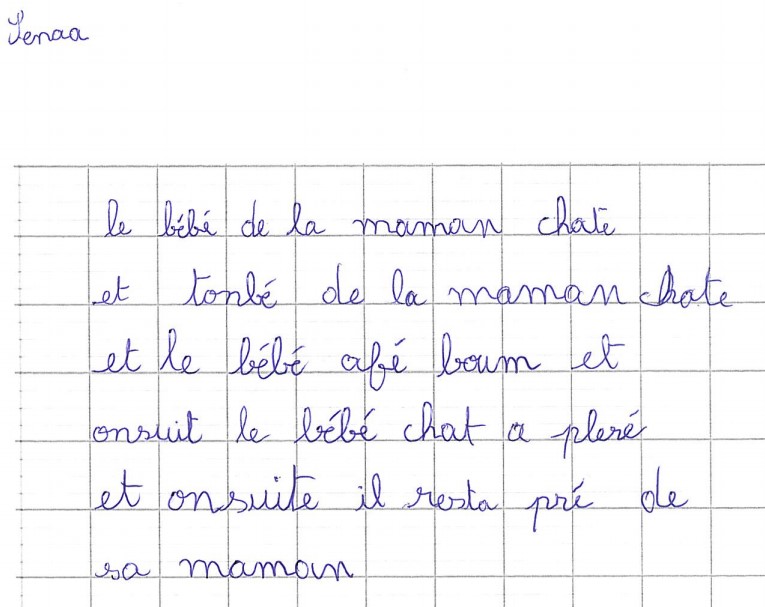 Senaa
le bébé de la maman chate
et tonbé de la maman chate
et le bébé afé boum et
onsuit le bébé chat a pleré
et onsuite il resta pré de
sa maman